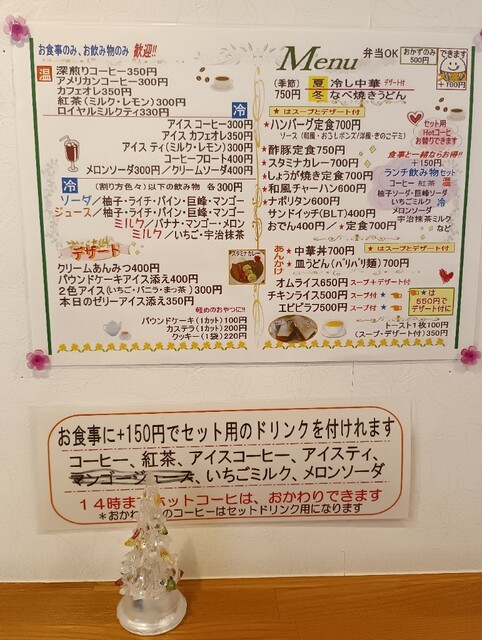 お食事のみ、お飲み物のみ 歓迎!!
温 深煎りコーヒー350円
アメリカンコーヒー300円
カフェオレ350円
紅茶(ミルク・レモン)300円
ロイヤルミルクティ330円
冷
アイス コーヒー300円
アイス カフェオレ350円
アイス ティ(ミルク・レモン)300円
コーヒーフロート400円
メロンソーダ300円/クリームソーダ400円
冷 (割り方色々)以下の飲み物 各300円
ソーダ/柚子・ライチ・パイン・巨峰・マンゴー
ジュース/柚子・ライチ・パイン・巨峰・マンゴー
ミルク/バナナ・マンゴー・メロン
ミルク/いちご・宇治抹茶
デザート
クリームあんみつ400円
パウンドケーキアイス添え400円
2色アイス(いちご・バニラ・まっ茶)300円
本日のゼリーアイス添え350円
軽めのおやつに!!
パウンドケーキ(1カット)100円
カステラ(1カット)200円
クッキー(1袋)220円
Menu
弁当OK
おかずのみ
500円
できます
+100円
(季節)
750円
夏 冷し中華 デザート付
冬 なべ焼きうどん
★はスープとデザート付
★ハンバーグ定食700円
ソース(和風・おろしポンズ/洋風・きのこデミ)
★酢豚定食750円
★スタミナカレー700円
★しょうが焼き定食700円
★和風チャーハン600円
★ナポリタン600円
サンドイッチ(BLT)400円
おでん400円/★定食700円
セット用
Hotコーヒ
お替りできます
食事と一緒ならお得!!
+150円
ランチ飲み物セット
コーヒー 紅茶 温
柚子ソーダ・巨峰ソーダ
いちごミルク 冷
メロンソーダ
宇治抹茶ミルク
など
スタミナカレー
あんかけ
★はスープとデザート付
★中華丼700円
★皿うどん(パリパリ麺)700円
オムライス650円 スープ+デザート付
チキンライス500円 スープ付★
エビピラフ500円 スープ付★
★は
550円で
デザート付に
トースト1枚100円
(スープ・デザート付)350円
お食事に+150円でセット用のドリンクを付けれます
コーヒー、紅茶、アイスコーヒー、アイスティ、
いちごミルク、メロンソーダ
14時まで ホットコーヒは、おかわりできます
*おかわ のコーヒーはセットドリンク用になります